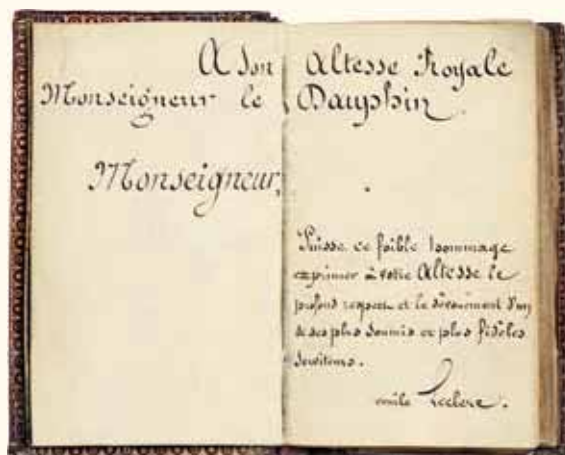 A Son Altesse Royale
Monseigneur le Dauphin.
Monseigneur,
Puisse ce foible hommage
exprimer à votre Altesse le
profond respect et le dévouement d'un
de ses plus soumis et plus fidèles
serviteurs.
emile Leclerc.